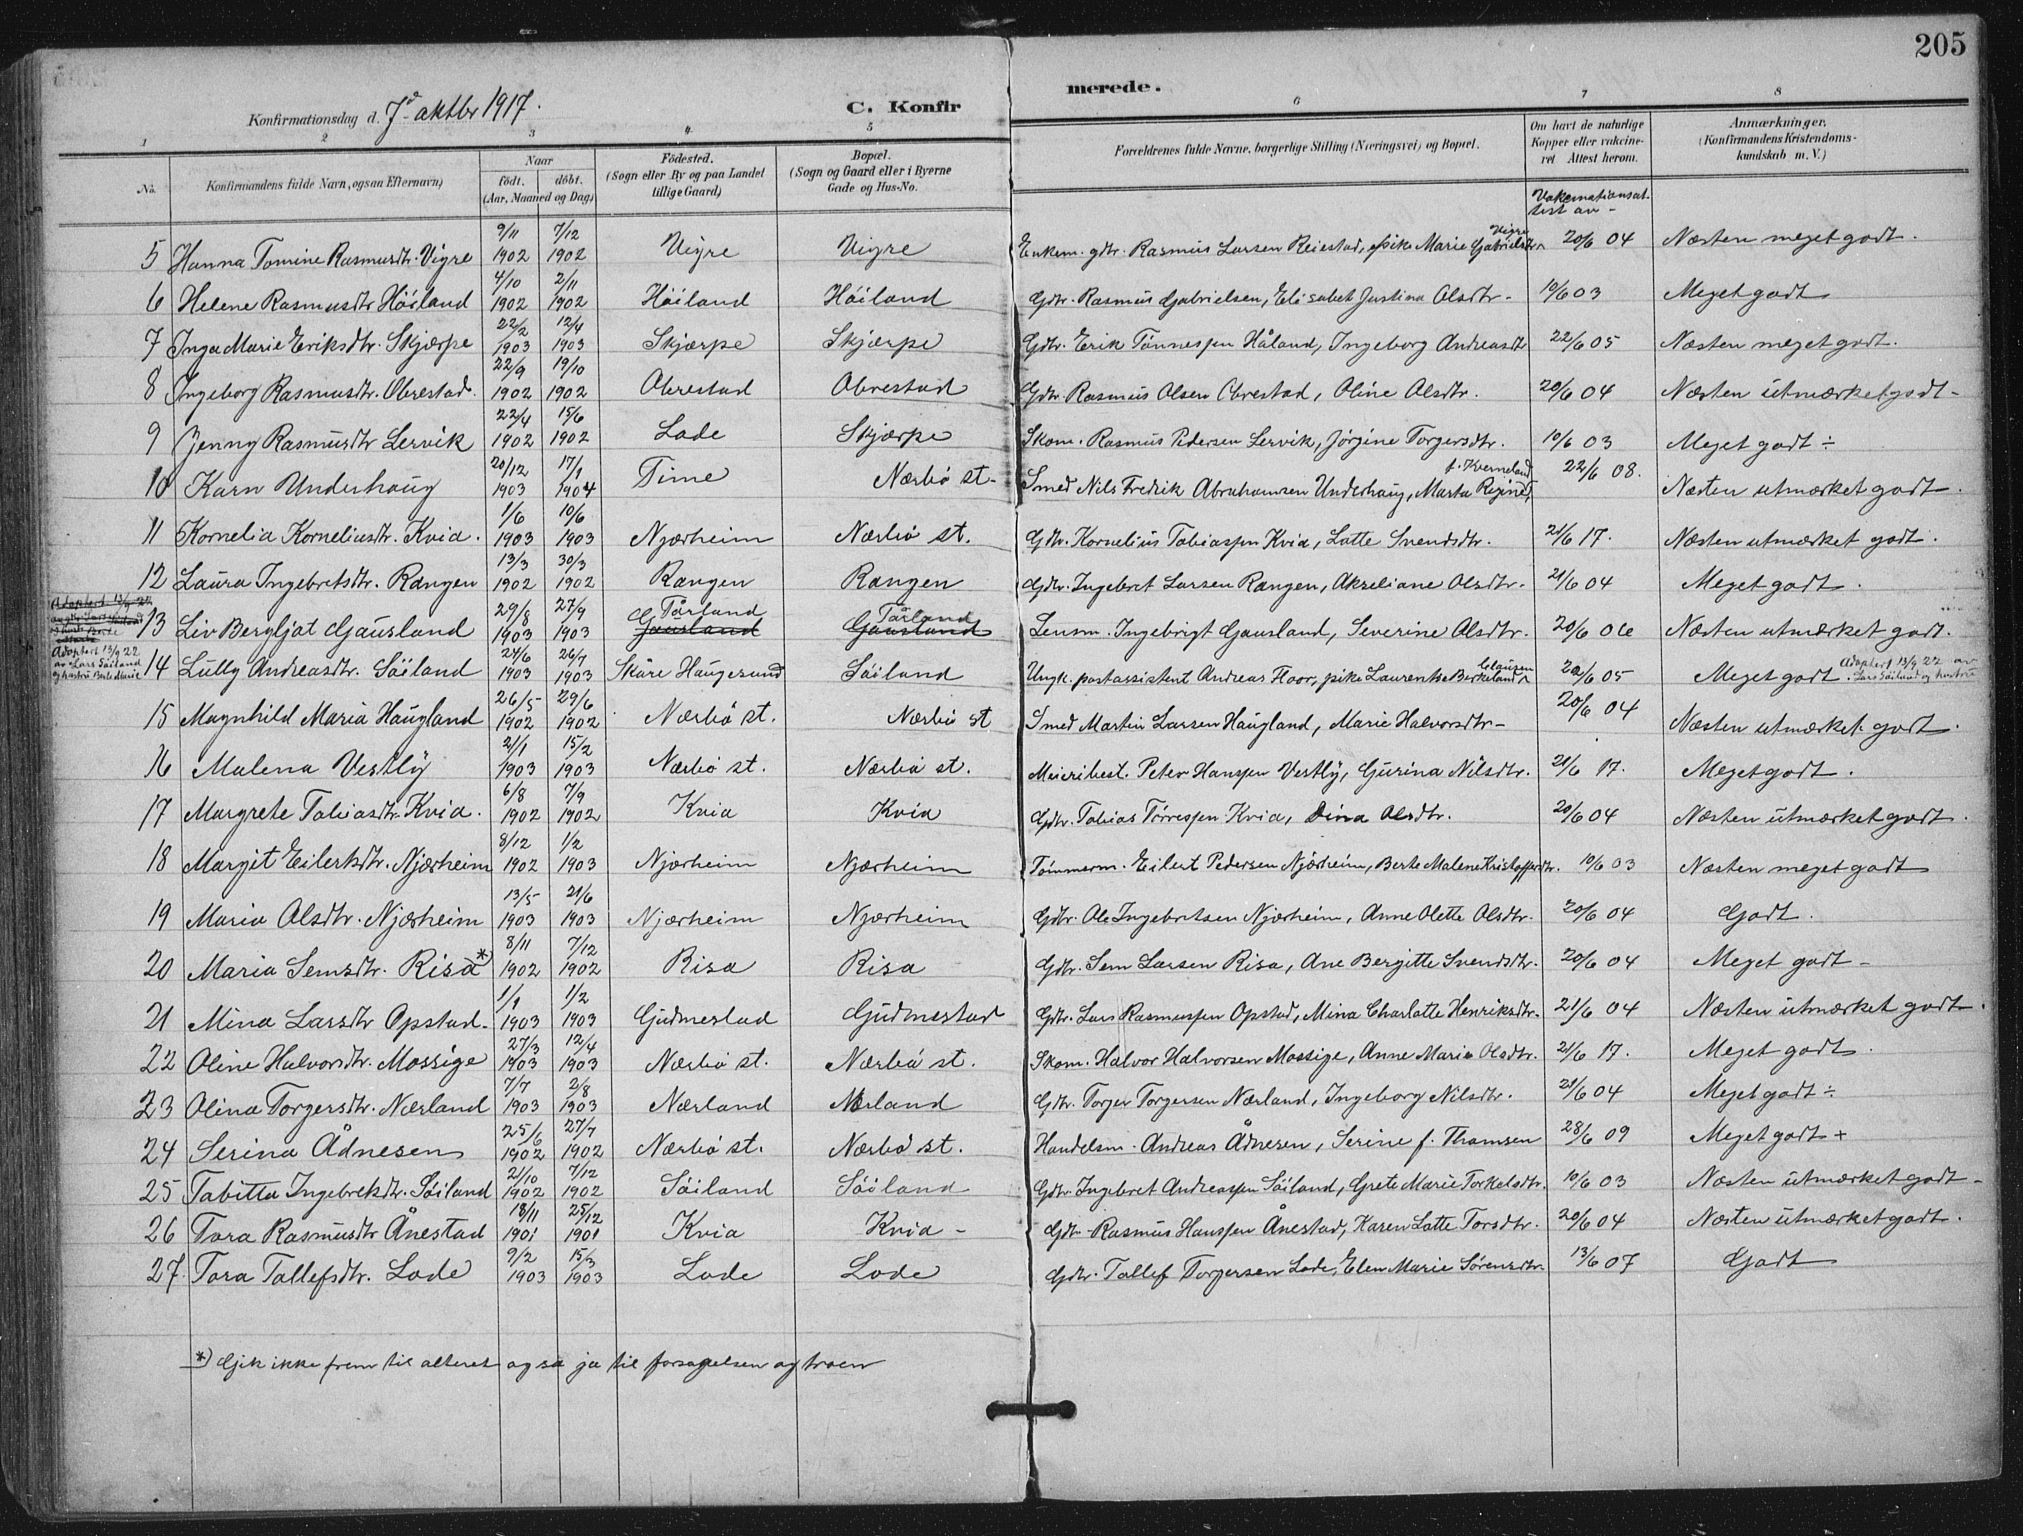 205
Konfirmationsdag d. 7de oktbr 1917.
C. Konfirmerede.
1 2 3 4 5 6 7 8
No. Konfirmandens fulde Navn, ogsaa Efternavn) Naar født. døbt. (Aar, Maaned og Dag) Fødested. (Sogn eller By og paa Landet tillige Gaard) Bopæl. (Sogn og Gaard eller i Byerne Gade og Hus-No. Forældrenes fulde Navne, borgerlige Stilling (Næringsvei) og Bopæl. Om havt de naturlige Kopper eller vakcineret Attest herom. Anmærkninger. (Konfirmandens Kristendomskundskab m. V.)
5 Hanna Tomine Rasmusdtr. Vigre 9/11 1902 7/12 1902 Vigre Vigre Enkem. gdr. Rasmus Larsen Reiestad, pike Marie Gabrielsdtr Vigre 20/6 04 Næsten meget godt.
6 Helene Rasmusdtr Høiland 4/10 1902 2/11 1902 Høiland Høiland Gdr. Rasmus Gabrielsen, Elisabet Justina Olsdtr. 10/6 03 Meget godt
7 Inga Marie Eriksdtr. Skjærpe 22/2 1903 12/4 1903 Skjærpe Skjærpe Gdr. Erik Tønnessen Håland, Ingeborg Andreasdtr 22/6 05 Næsten meget godt.
8 Ingeborg Rasmusdtr. Obrestad. 22/9 1902 19/10 1902 Obrestad Obrestad Gdr. Rasmus Olsen Obrestad, Oline Olsdtr. 20/6 04 Næsten utmærket godt
9 Jenny Rasmusdtr Lervik 22/4 1902 15/6 1902 Lode Skjærpe Skom. Rasmus Pedersen Lervik, Jørgine Torgersdtr. 10/6 03 Meget godt ÷
10 Karn Underhaug 20/12 1903 17/1 1904 Time Nærbø st. Smed Nils Fredrik Abrahamsen Underhaug, Marta Regine f. Kverneland 22/6 08. Næsten utmærket godt.
11 Kornelia Korneliusdtr. Kvia. 1/6 1903 10/6 1903 Njærheim Nærbø st. Gdr. Kornelius Tobiassen Kvia, Lotte Svendsdtr. 21/6 17. Næsten utmærket godt.
12 Laura Ingebretsdtr. Rangen 13/3 1902 30/3 1902 Rangen Rangen Gdr. Ingebret Larsen Rangen, Akseliane Olsdtr. 21/6 04 Meget godt.
13 Liv Bergljot Gausland 29/8 1903 27/9 1903 Gausland Tårland Gausland Tårland Lensm. Ingebrigt Gausland, Severine Olsdtr. 20/6 06 Næsten utmærket godt.
Adoptert 13/9 22 av Lars Søiland og hustru Berte Marie
14 Lully Andreasdtr. Søiland 24/6 1903 26/7 1903 Skåre Haugesund Søiland Ungk. postassistent Andreas Floor, pike Laurentse Berkeland Clausen 20/6 05 Meget godt. Adoptert 13/9 22 av Lars Søiland og hustru
15 Magnhild Maria Haugland 26/5 1902 29/6 1902 Nærbø st. Nærbø st Smed Martin Larsen Haugland, Marie Halvorsdtr. 20/6 04 Næsten utmærket godt.
16 Malena Vestly 21/1 1903 15/2 1903 Nærbø st. Nærbø st. Meieribest. Peter Hanssen Vestly, Gurina Nilsdtr. 21/6 17. Meget godt.
17 Margrete Tobiasdtr. Kvia. 6/8 1902 7/9 1902 Kvia Kvia Gdr. Tobias Tørressen Kvia, Dina Olsdtr. 20/6 04 Næsten utmærket godt.
18 Margit Eilertsdtr. Njærheim 8/12 1902 1/2 1903 Njærheim Njærheim Tømmerm. Eilert Pedersen Njærheim, Berte Malene Kristoffersdtr. 10/6 03 Næsten meget godt
19 Maria Olsdtr. Njærheim 13/5 1903 21/6 1903 Njærheim Njærheim Gdr. Ole Ingebretsen Njærheim, Anne Olette Olsdtr. 20/6 04 Godt.
20 Maria Semsdtr. Risa * 8/11 1902 7/12 1902 Risa Risa Gdr. Sem Larsen Risa, Ane Bergitte Svendsdtr. 20/6 04 Meget godt
21 Mina Larsdtr Opstad. 1/1 1903 1/2 1903 Gudmestad Gudmestad Gdr. Lars Rasmussen Opstad, Mina Charlotte Henriksdtr. 21/6 04 Næsten utmærket godt.
22 Oline Halvorsdtr. Mossige 27/3 1903 12/4 1903 Nærbø st. Nærbø st. Skom. Halvor Halvorsen Mossige, Anne Maria Olsdtr. 21/6 17. Meget godt.
23 Olina Torgersdtr. Nærland 7/7 1903 2/8 1903 Nærland Nærland Gdr. Torger Torgersen Nærland, Ingeborg Nilsdtr. 21/6 04 Meget godt ÷
24 Serina Ådnesen 25/6 1902 27/7 1902 Nærbø st. Nærbø st. Handelsm. Andreas Ådnesen, Serine f. Thomsen 28/6 09 Meget godt +
25 Tabitta Ingebretsdtr. Søiland 21/10 1902 7/12 1902 Søiland Søiland Gdr. Ingebret Andreassen Søiland, Grete Marie Torkelsdtr. 10/6 03 Næsten utmærket godt
26 Tora Rasmusdtr Ånestad 18/11 1901 25/12 1901 Kvia Kvia Gdr. Rasmus Hanssen Ånestad, Karen Lotte Torsdtr. 20/6 04 Næsten utmærket godt.
27. Tora Tollefsdtr. Lode 9/2 1903 15/3 1903 Lode Lode Gdr. Tollef Torgersen Lode, Elen Marie Sørensdtr. 13/6 07 Godt
*) Gjik ikke frem til alteret og sa ja til forsagelsen og troen